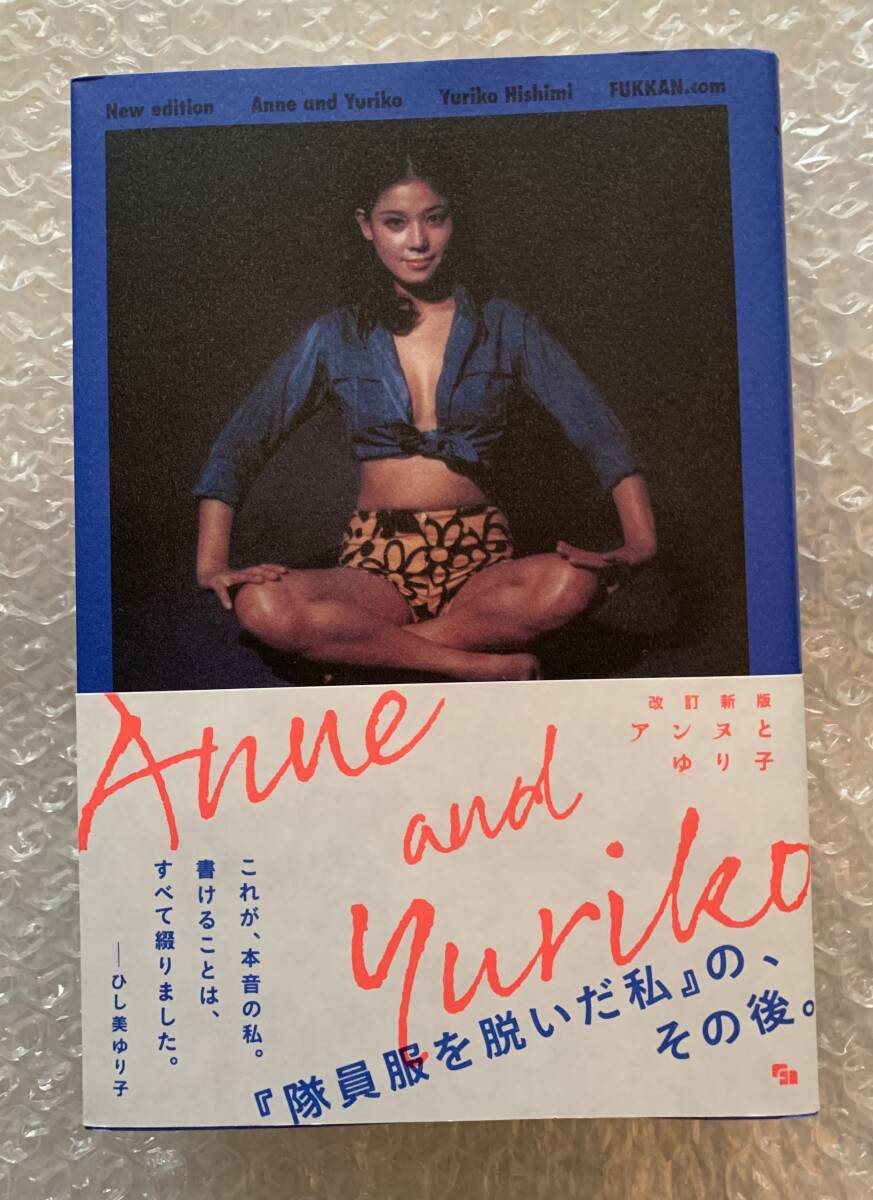 New edition Anne and Yuriko Yuriko Hishimi FUKKAN.com
改訂新版
アンヌと
ゆり子
Anne
and
Yuriko
これが、本音の私。
書けることは、
すべて綴りました。
──ひし美ゆり子
『隊員服を脱いだ私』の、
その後。